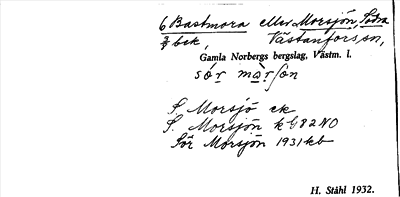 6 Bastmora eller Morsjön, Södra
2/3 bek, Västanfors sn,
Gamla Norbergs bergslag, Västm. l.
sór màrſon
S. Morsjö ek
S. Morsjön kG82NO
Sör Morsjön 1931 kb
H. Ståhl 1932.